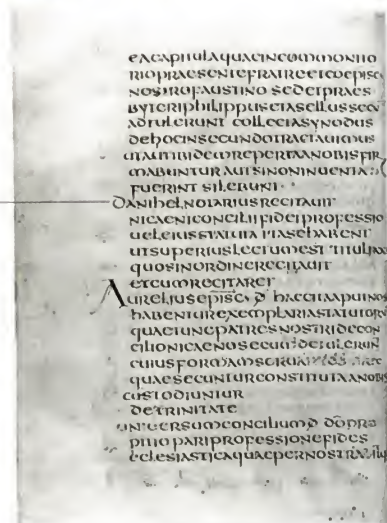 EACAPITULAQUAEINCOMMONITO
RIOPRAESENTEFRATREETCOEPISC
NOSTROFAUSTINO SEDETPRAES
BYTERIPHILIPPUSETASELLUSSECU
ADTULERUNT COLLECTASYNODUS
DEHOCINSECUNDOTRACTAUIMUS
UTAUTIBIDEMREPERTAANOBISFIR
MABUNTURAUTSINONINUENTA
FUERINT SILEBUNT
DANIHEL NOTARIUSRECITAUIT
NICAENICONCILIIFIDEIPROFESSIO
UELEIUSSTATUTA ITASEHABENT
UTSUPERIUSLECTUMEST TITULI
QUOSINORDINERECITAUIT
ETCUMRECITARET
AURELIUSEPISC D HAECITAAPUDNOS
HABENTUREXEMPLARIASTATUTORU
QUAETUNCPATRESNOSTRIDECON
CILIONICAENOSECUMDETULERUN
CUIUSFORMAMSERUANTES
QUAESECUNTURCONSTITUTAANOBIS
CUSTODIUNTUR
DETRINITATE
UNIUERSUMCONCILIUMD DOPRO
PITIOPARIPROFESSIONEFIDES
ECLESIASTICAQUAEPERNOSTRA